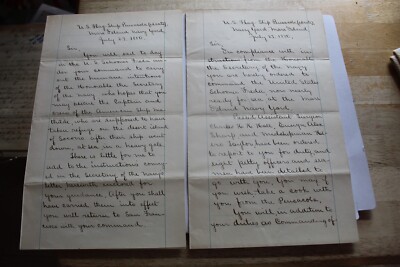 U.S. Flag Ship Pensacola,
Mare Island Navy Yard,
July 23, 18
Sir,
You will sail to day
in the U.S. Schooner
your command to carry
out the humane intentions
of the Honorable the Secretary
of the Navy who hopes that you
may rescue the Captain and
crew of the American Ship
who are supposed to have
taken refuge on the desert island
of Socorro after their ship went
down, at sea in a heavy gale.
There is little for me to
add to the instructions convey-
ed in the Secretary of the Navy's
letter herewith enclosed for
your guidance. After you shall
have carried them into effect
you will return to San Fran-
cisco with your command.
U.S. Flag Ship Pensacola,
Navy Yard, Mare Island
July 23, 18
Sir,
In compliance with in-
structions from the Honorable
the Secretary of the Navy
you are hereby ordered to
command the United States
Schooner now nearly
ready for sea at the Mare
Island Navy Yard.
Past Assistant Surgeon
Ensign
and Midshipman
have been ordered
to report to you for duty and
eight petty officers and sea-
men have been detailed to
go with you. You may if
you wish take a cook with
you from the Pensacola.
You will in addition to
your duties as Commanding Of-